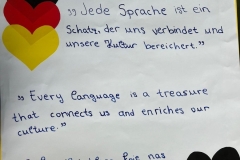 „Jede Sprache ist ein
Schatz, der uns verbindet und
unsere Kultur bereichert."
„Every language is a treasure
that connects us and enriches our
culture."